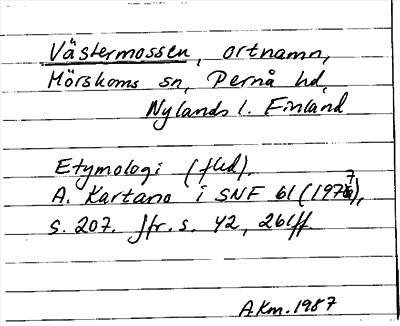 Västermossen, ortnamn,
Mörskoms sn, Pernå hd,
Nylands l. Finland
Etymologi (fled).
A. Kartano i SNF 61 (1977),
s. 207. Jfr. s. 42, 261ff
AKm. 1987